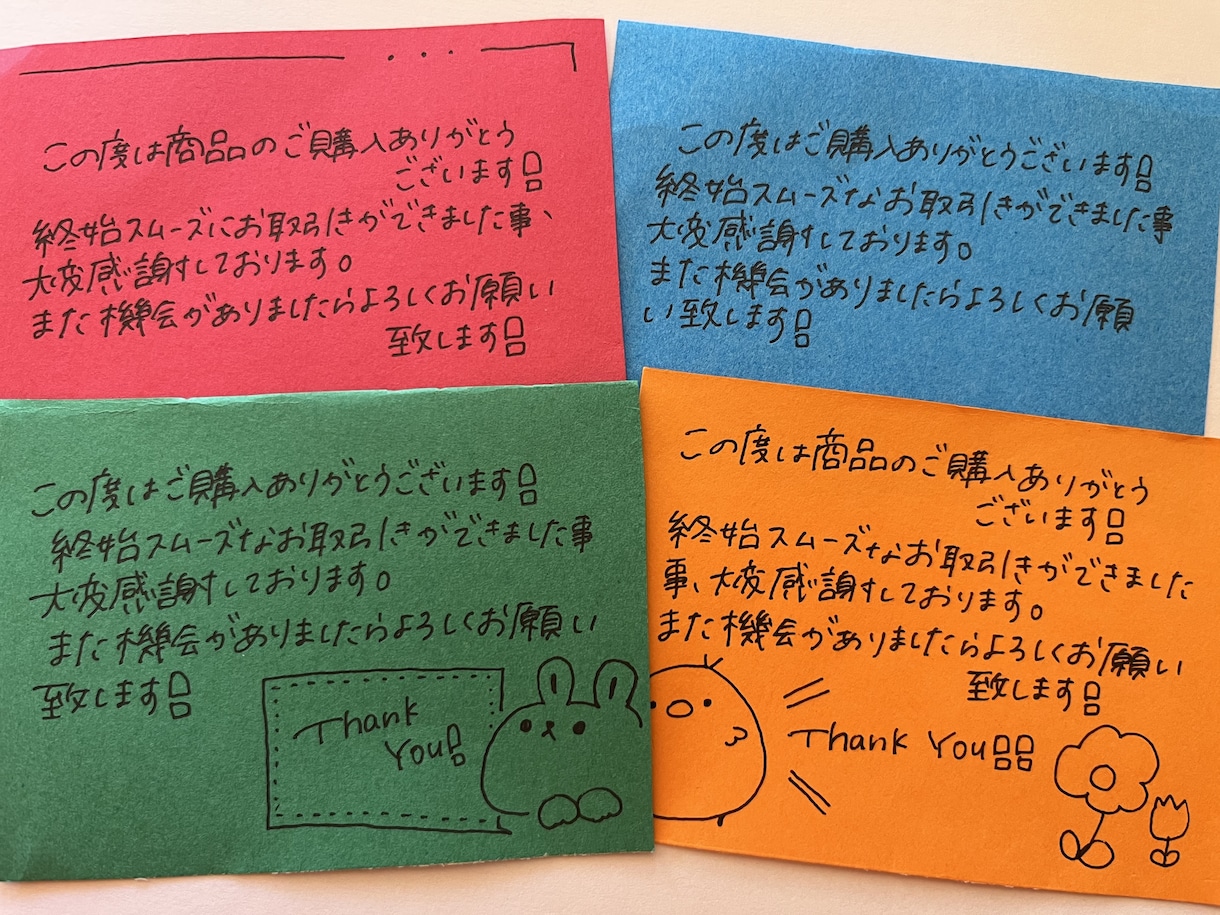 この度は商品のご購入ありがとう
ございます!!
終始スムーズにお取引きができました事、
大変感謝しております。
また機会がありましたらよろしくお願い
致します!!
この度はご購入ありがとうございます!!
終始スムーズなお取引きができました事
大変感謝しております。
また機会がありましたらよろしくお願
い致します!!
この度はご購入ありがとうございます!!
終始スムーズなお取引きができました事
大変感謝しております。
また機会がありましたらよろしくお願い
致します!!
Thank
You!!
この度は商品のご購入ありがとう
ございます!!
終始スムーズなお取引きができました
事、大変感謝しております。
また機会がありましたらよろしくお願い
致します!!
Thank You!!